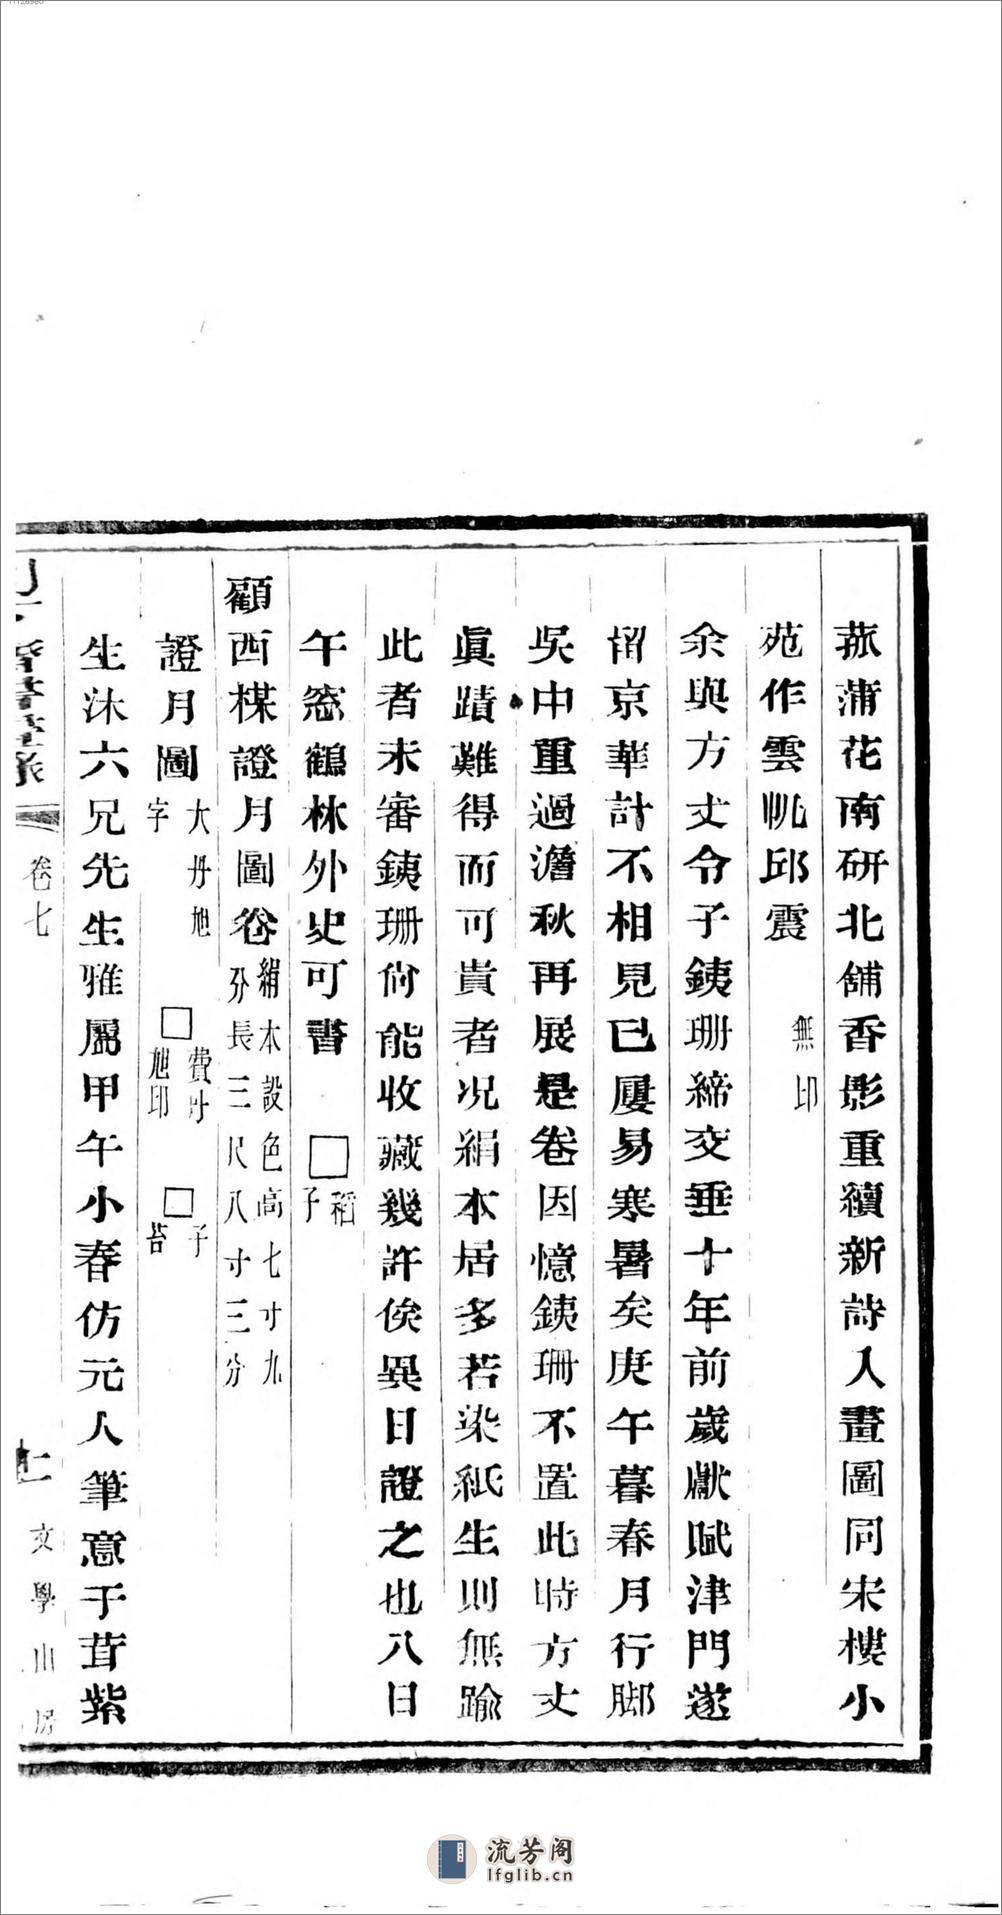 菰蒲花南研北舖香影重續新詩人畫圖同宋樓小
苑作雲帆邱震無印
余與方丈令子銕珊締交垂十年前歲獻賦津門遂
留京華計不相見已屢易寒暑矣庚午暮春月行脚
吳中重過澹秋再展是卷因憶銕珊不置此時方丈
眞蹟難得而可貴者况絹本居多若染紙生則無踰
此者未審銕珊尙能收藏幾許俟異日證之也八日
午窓鶴林外史可書□稻子
顧西楳證月圖卷絹本設色高七寸九分長三尺八寸三分
證月圖大丹旭字□費丹旭印□子苔
生沐六兄先生雅屬甲午小春仿元人筆意于茸紫
卷七
七
文學山房
流芳阁
lfglib.cn